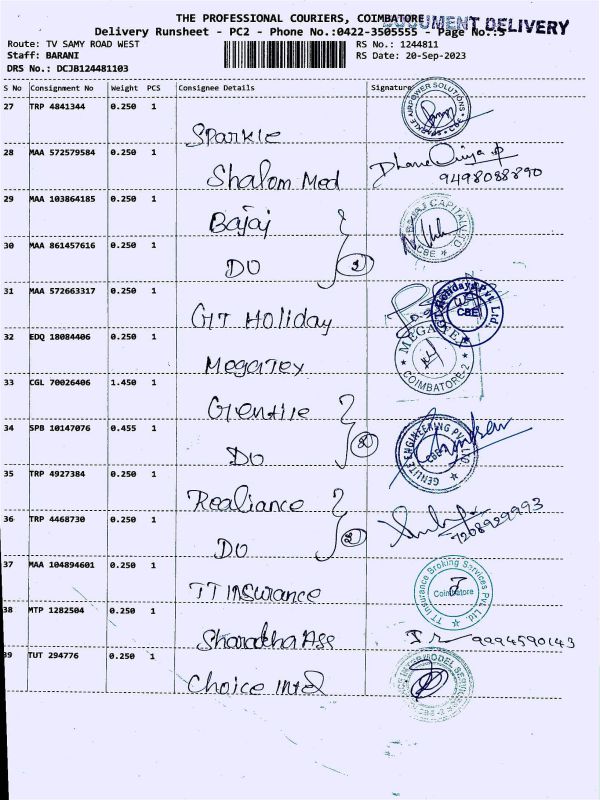 THE PROFESSIONAL COURIERS, COIMBATORE
DOCUMENT DELIVERY
Delivery Runsheet - PC2 - Phone No.:0422-3505555 - Page No.:5
Route: TV SAMY ROAD WEST RS No.: 1244811
Staff: BARANI RS Date: 20-Sep-2023
DRS No.: DCJB124481103
S No Consignment No Weight PCS Consignee Details Signature
27 TRP 4841344 0.250 1
Sparkle
28 MAA 572579584 0.250 1
Shalom Med 9498088890
29 MAA 103864185 0.250 1
Bajaj
BAJAJ CAPITAL LTD CBE
30 MAA 861457616 0.250 1
DO 2
31 MAA 572663317 0.250 1
GIT Holiday
Holidays Pvt. Ltd. CBE
32 EDQ 18084406 0.250 1
MegaTex
MEGATEX COIMBATORE-2
33 CGL 70026406 1.450 1
Glentile
34 SPB 10147076 0.455 1
DO 2
GENUTE ENGINEERING PVT LTD CBE
35 TRP 4927384 0.250 1
Realiance
36 TRP 4468730 0.250 1
DO 2
7208929993
37 MAA 104894601 0.250 1
TT INSurance
TT Insurance Broking Services Pvt. Ltd. Coimbatore
38 MTP 1282504 0.250 1
Sharadha Ass 9994590143
39 TUT 294776 0.250 1
Choice Intel